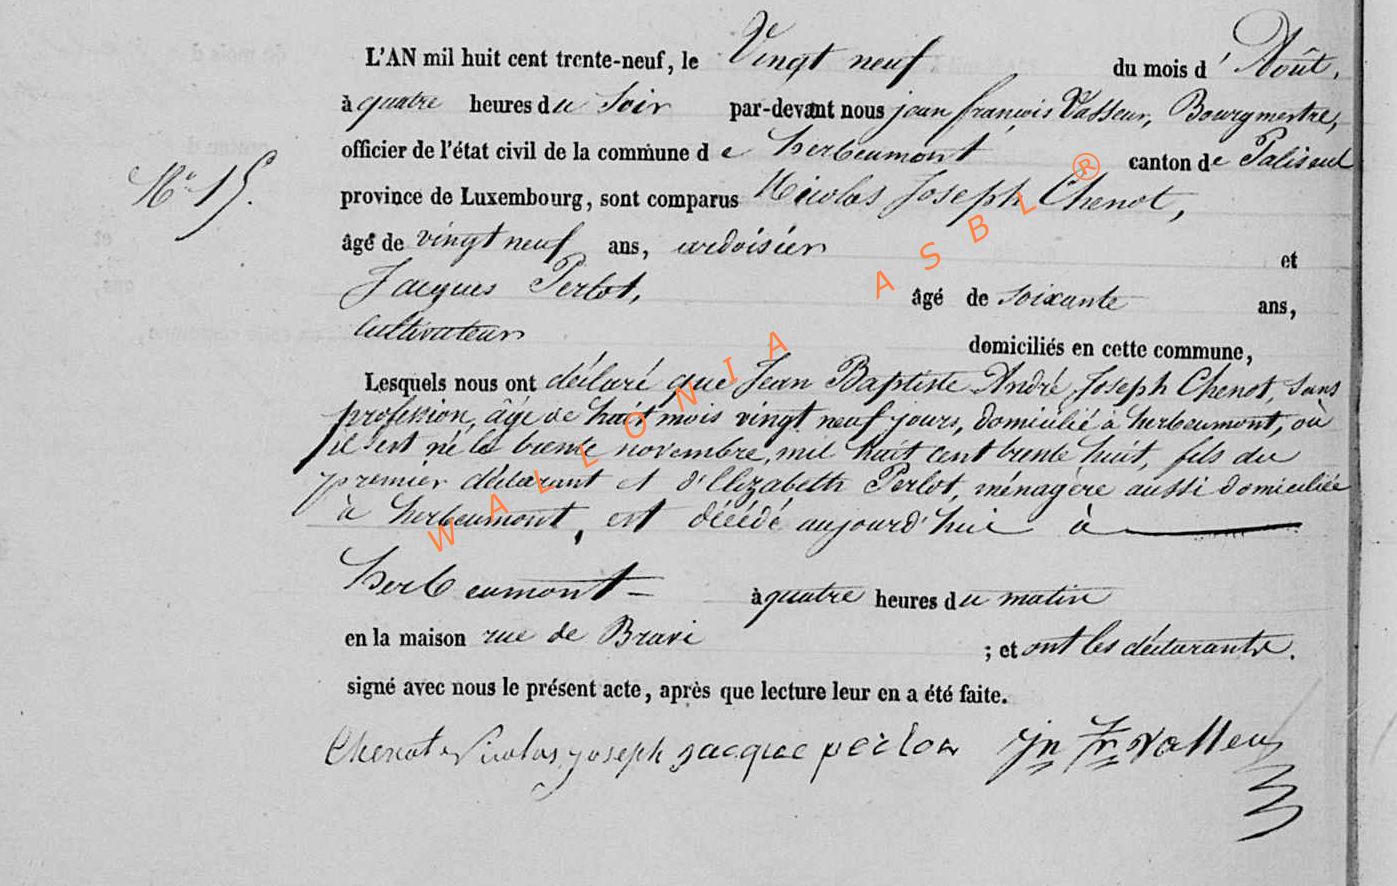 L'AN mil huit cent trente-neuf, le Vingt neuf du mois d' Août,
à quatre heures du Soir par-devant nous jean françois Vasseur, Bourgmestre,
officier de l'état civil de la commune de herbeumont canton de Paliseul
N° 15.
province de Luxembourg, sont comparus Nicolas Joseph Chenot,
âgé de vingt neuf ans, ardoisier et
Jacques Perlot, âgé de soixante ans,
Cultivateur domiciliés en cette commune,
Lesquels nous ont déclaré que Jean Baptiste André Joseph Chenot, sans
profession, âgé de huit mois vingt neuf jours, domicilié à herbeumont, où
il est né le trente novembre, mil huit cent trente huit, fils du
premier déclarant et d'Elizabeth Perlot, ménagère aussi domiciliée
à herbeumont, est décédé aujourd'hui à
herbeumont à quatre heures du matin
en la maison rue de Bravi ; et ont les déclarants.
signé avec nous le présent acte, après que lecture leur en a été faite.
Chenot Nicolas joseph jacque perlot Jn Fr Vasseur
WALLONIA ASBL ®